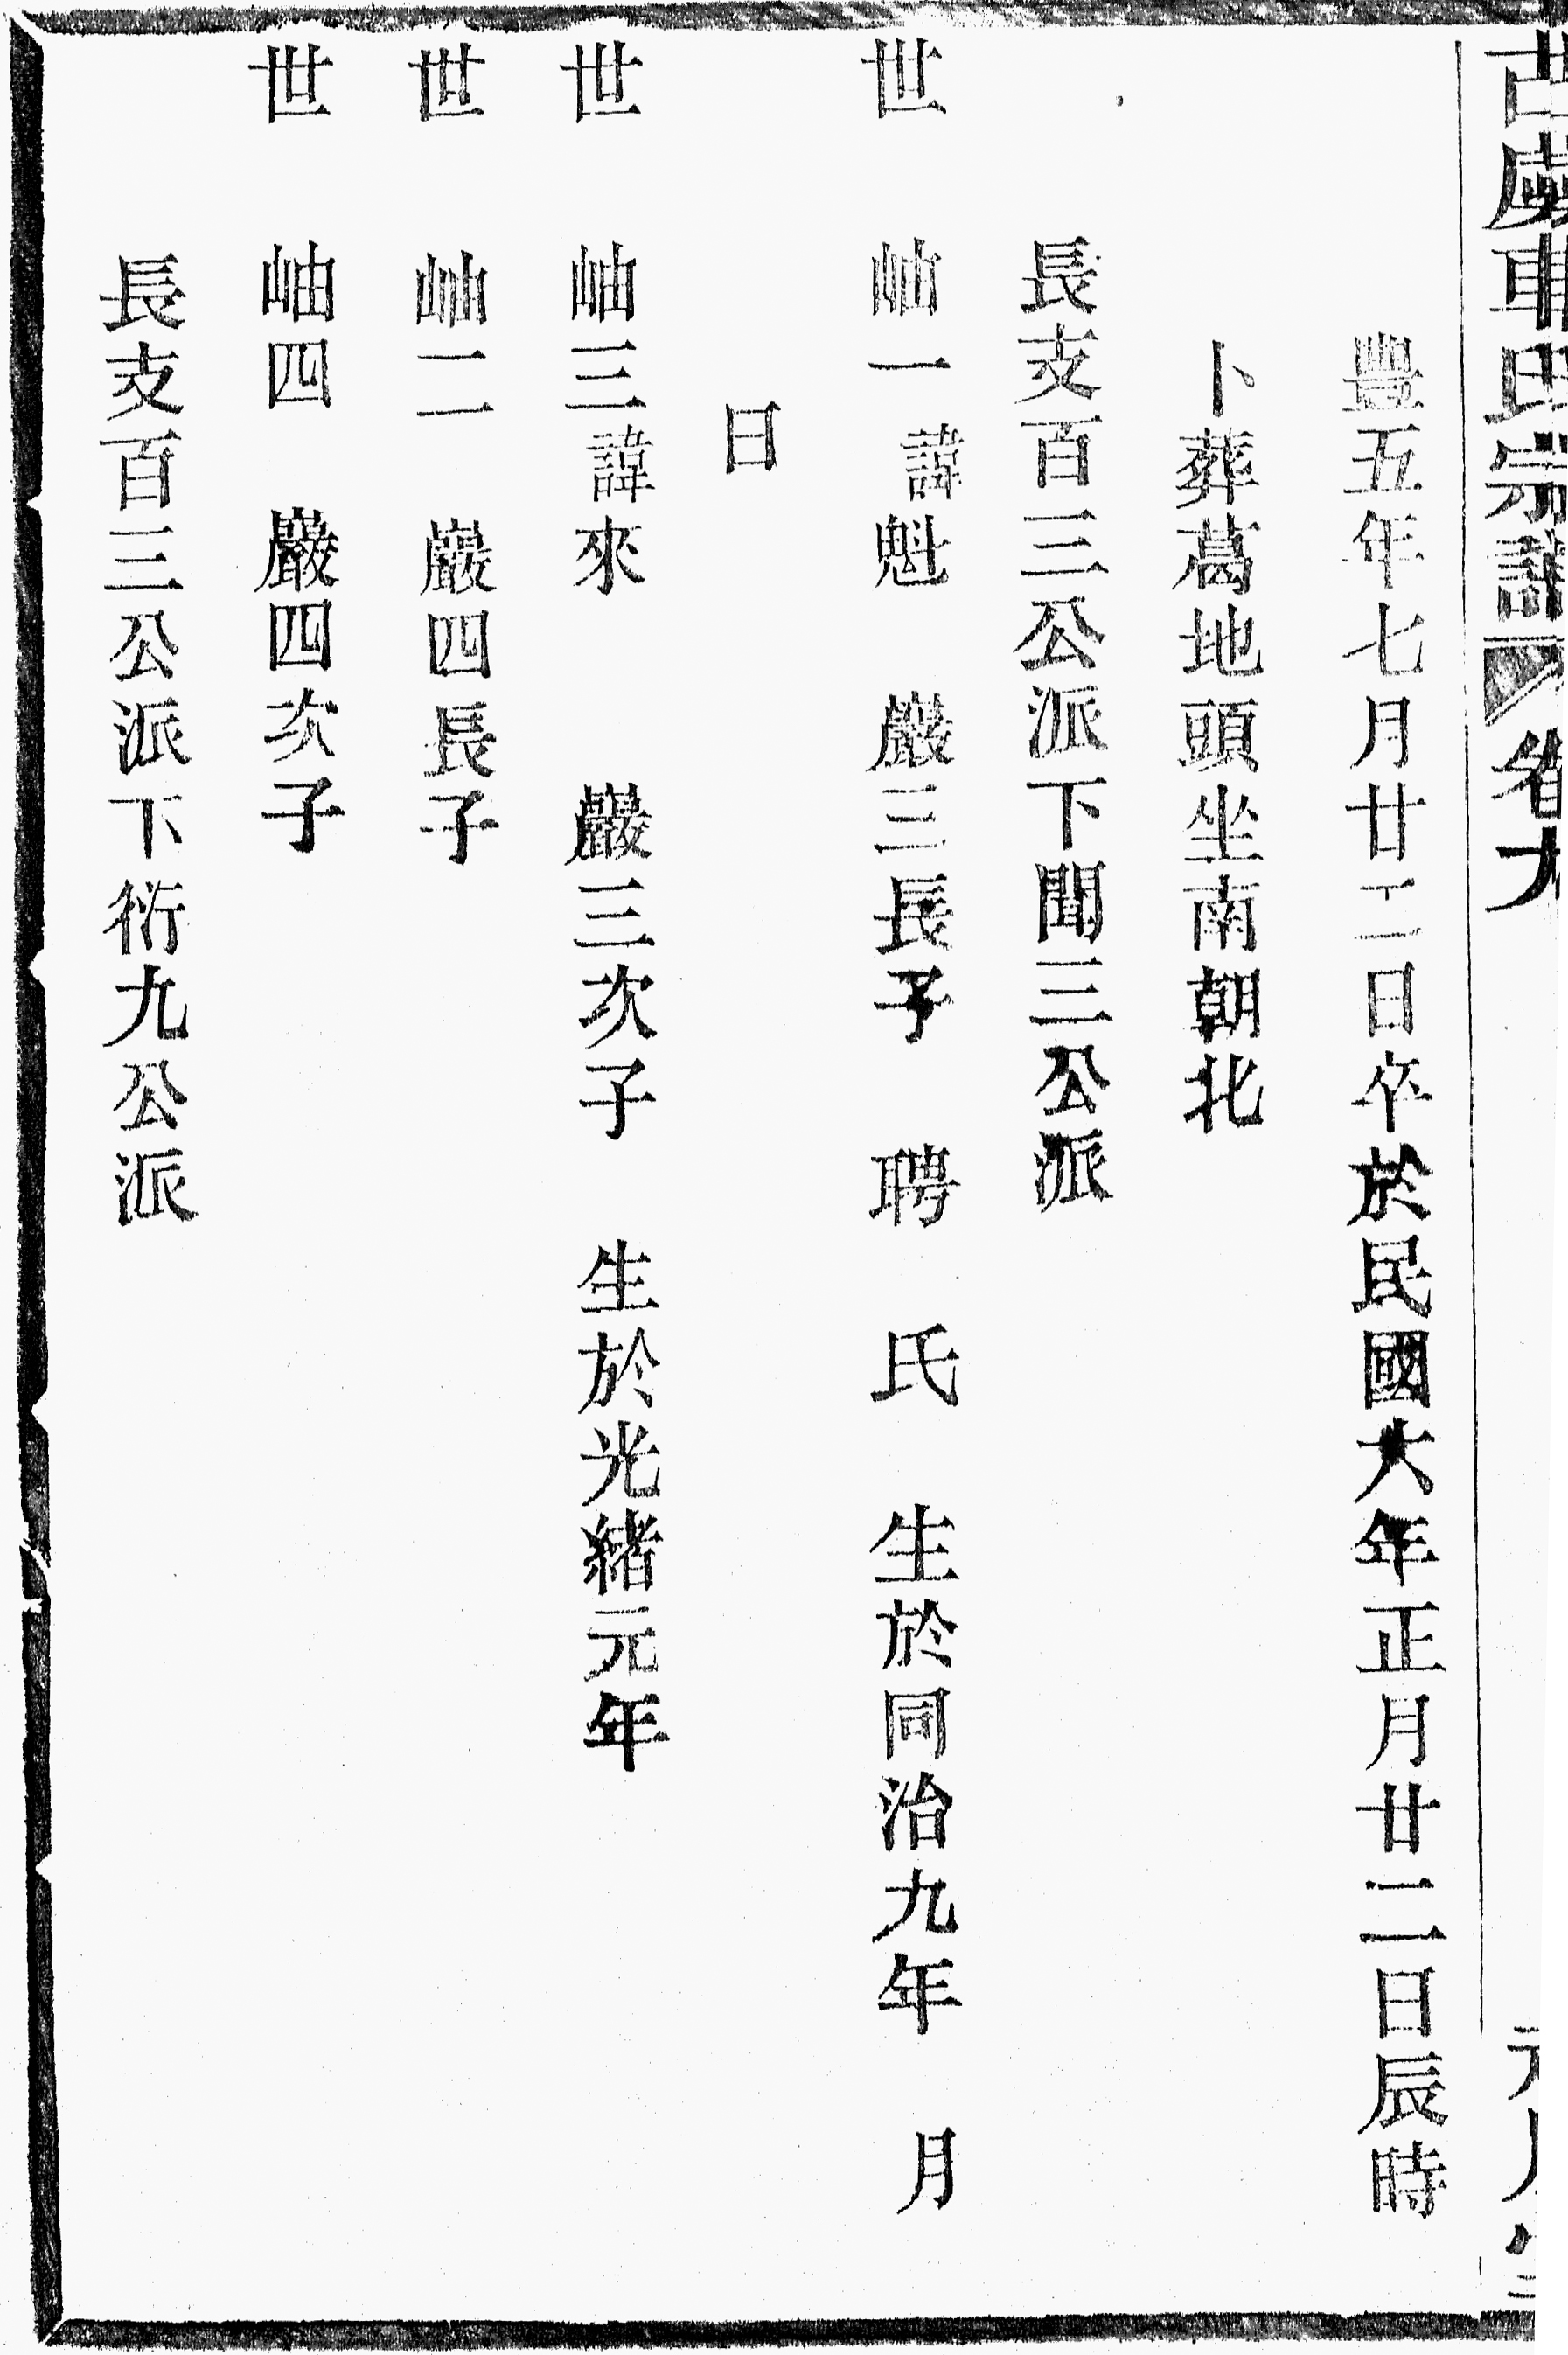 古虞車氏宗譜 卷九
豐五年七月廿二日卒於民國六年正月廿二日辰時
卜葬葛地頭坐南朝北
長支百三公派下聞三公派
世 岫一諱魁 巖三長子 聘 氏 生於同治九年 月
日
世 岫三諱來 巖三次子 生於光緒元年
世 岫二 巖四長子
世 岫四 巖四次子
長支百三公派下衍九公派